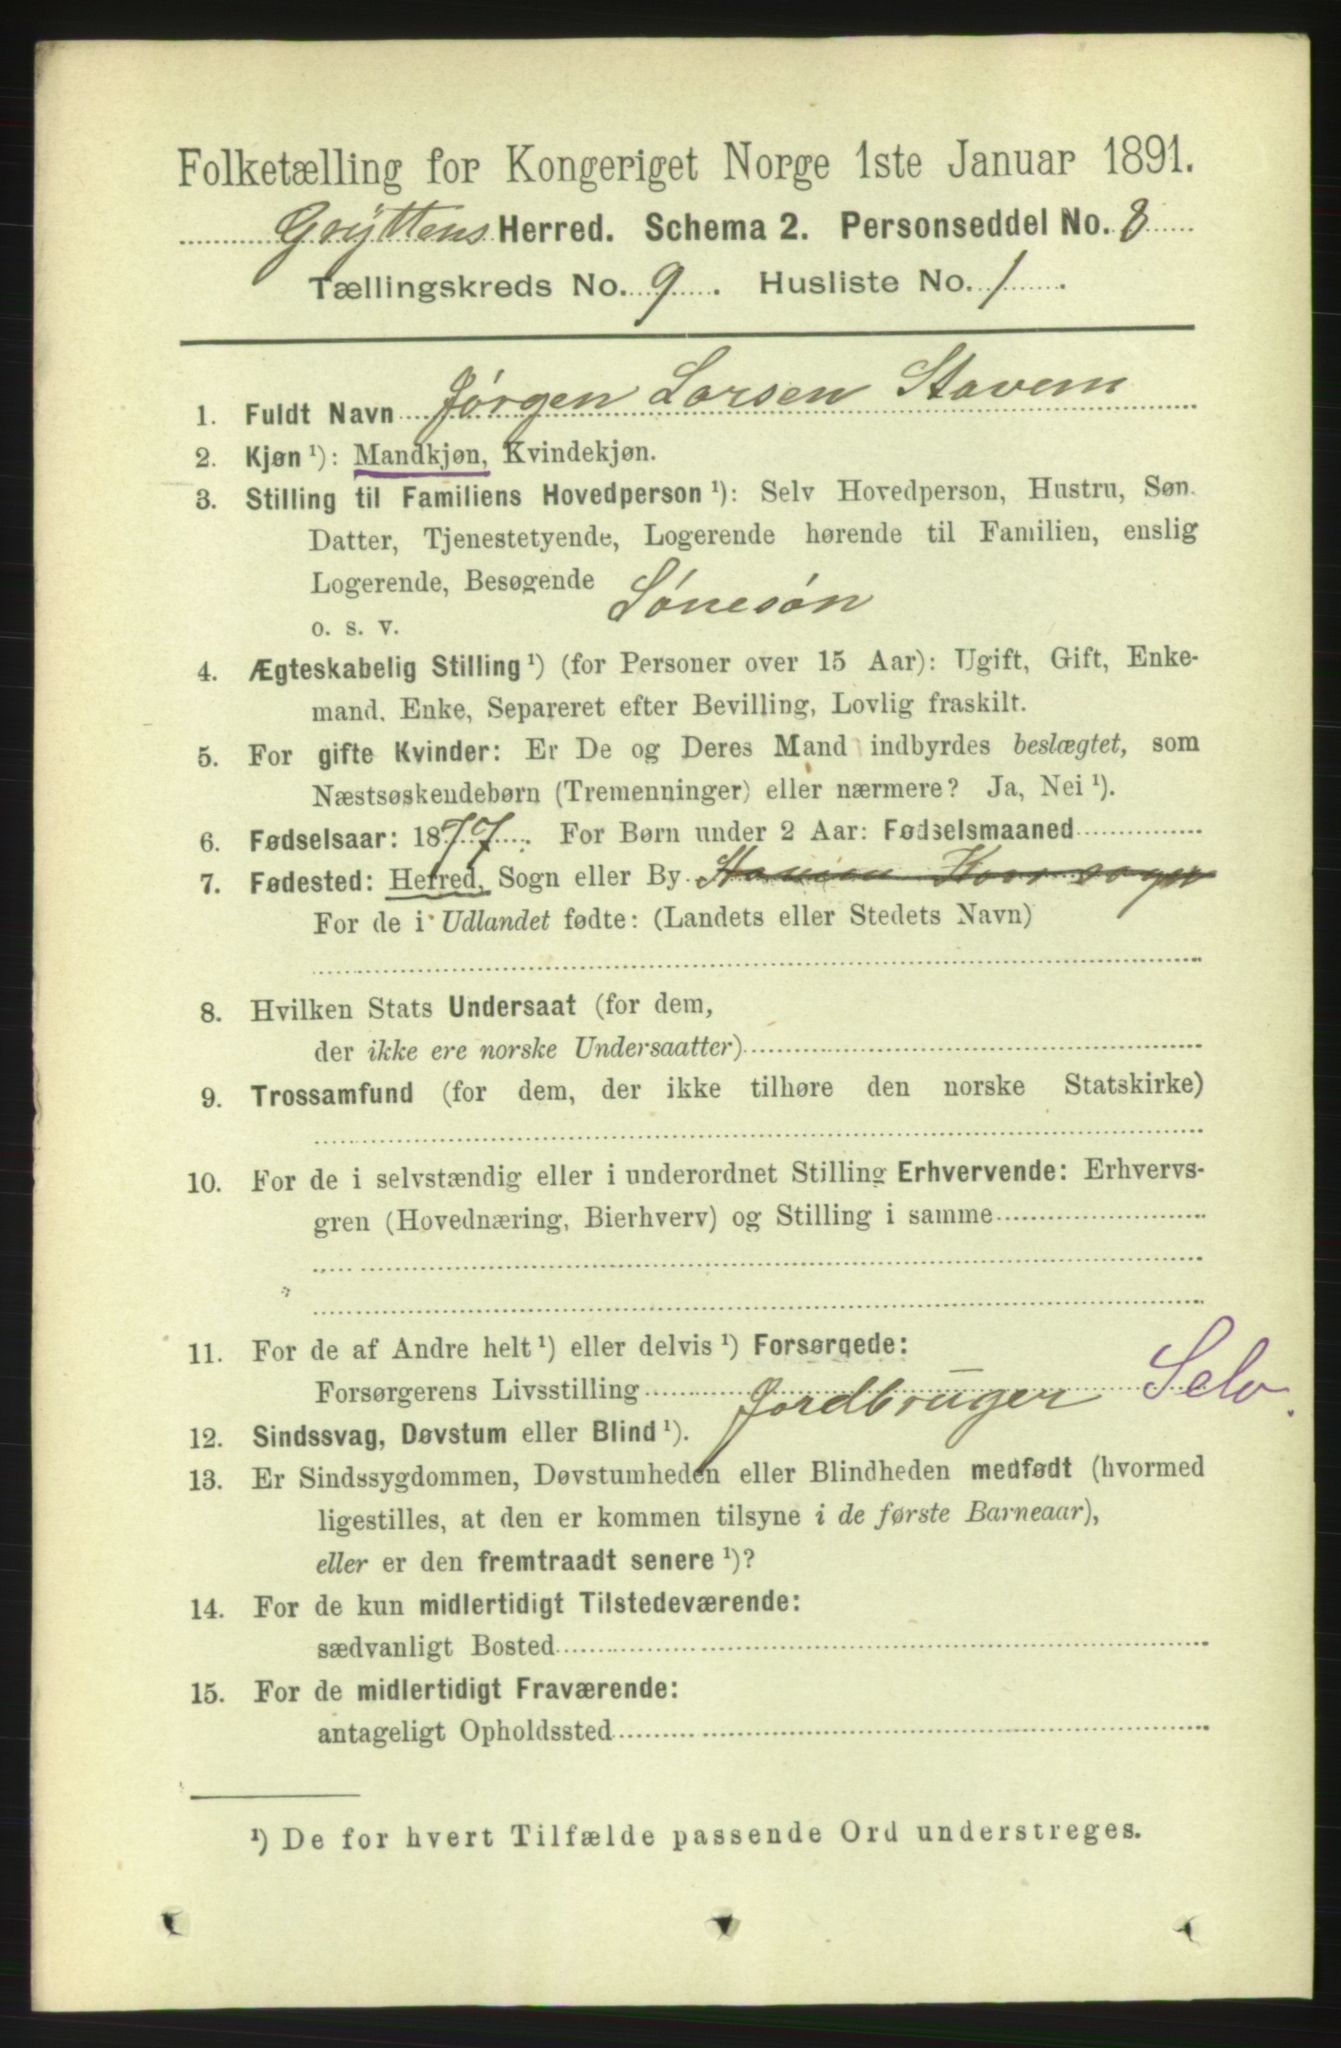 Folketælling for Kongeriget Norge 1ste Januar 1891.
Grÿttens Herred. Schema 2. Personseddel No. 8
Tællingskreds No. 9. Husliste No. 1.
1. Fuldt Navn Jørgen Larsen Stavem
2. Kjøn ¹): Mandkjøn, Kvindekjøn.
3. Stilling til Familiens Hovedperson ¹): Selv Hovedperson, Hustru, Søn.
Datter, Tjenestetyende, Logerende hørende til Familien, enslig
Logerende, Besøgende
o. s. v. Sønesøn
4. Ægteskabelig Stilling ¹) (for Personer over 15 Aar): Ugift, Gift, Enke-
mand. Enke, Separeret efter Bevilling, Lovlig fraskilt.
5. For gifte Kvinder: Er De og Deres Mand indbyrdes beslægtet, som
Næstsøskendebørn (Tremenninger) eller nærmere? Ja, Nei ¹).
6. Fødselsaar: 1877. For Børn under 2 Aar: Fødselsmaaned
7. Fødested: Herred, Sogn eller By
For de i Udlandet fødte: (Landets eller Stedets Navn)
8. Hvilken Stats Undersaat (for dem,
der ikke ere norske Undersaatter)
9. Trossamfund (for dem, der ikke tilhøre den norske Statskirke)
10. For de i selvstændig eller i underordnet Stilling Erhvervende: Erhvervs-
gren (Hovednæring, Bierhverv) og Stilling i samme
11. For de af Andre helt ¹) eller delvis ¹) Forsørgede:
Forsørgerens Livsstilling Jordbruger Selv.
12. Sindssvag, Døvstum eller Blind ¹).
13. Er Sindssygdommen, Døvstumheden eller Blindheden medfødt (hvormed
ligestilles, at den er kommen tilsyne i de første Barneaar),
eller er den fremtraadt senere ¹)?
14. For de kun midlertidigt Tilstedeværende:
sædvanligt Bosted
15. For de midlertidigt Fraværende:
antageligt Opholdssted
¹) De for hvert Tilfælde passende Ord understreges.